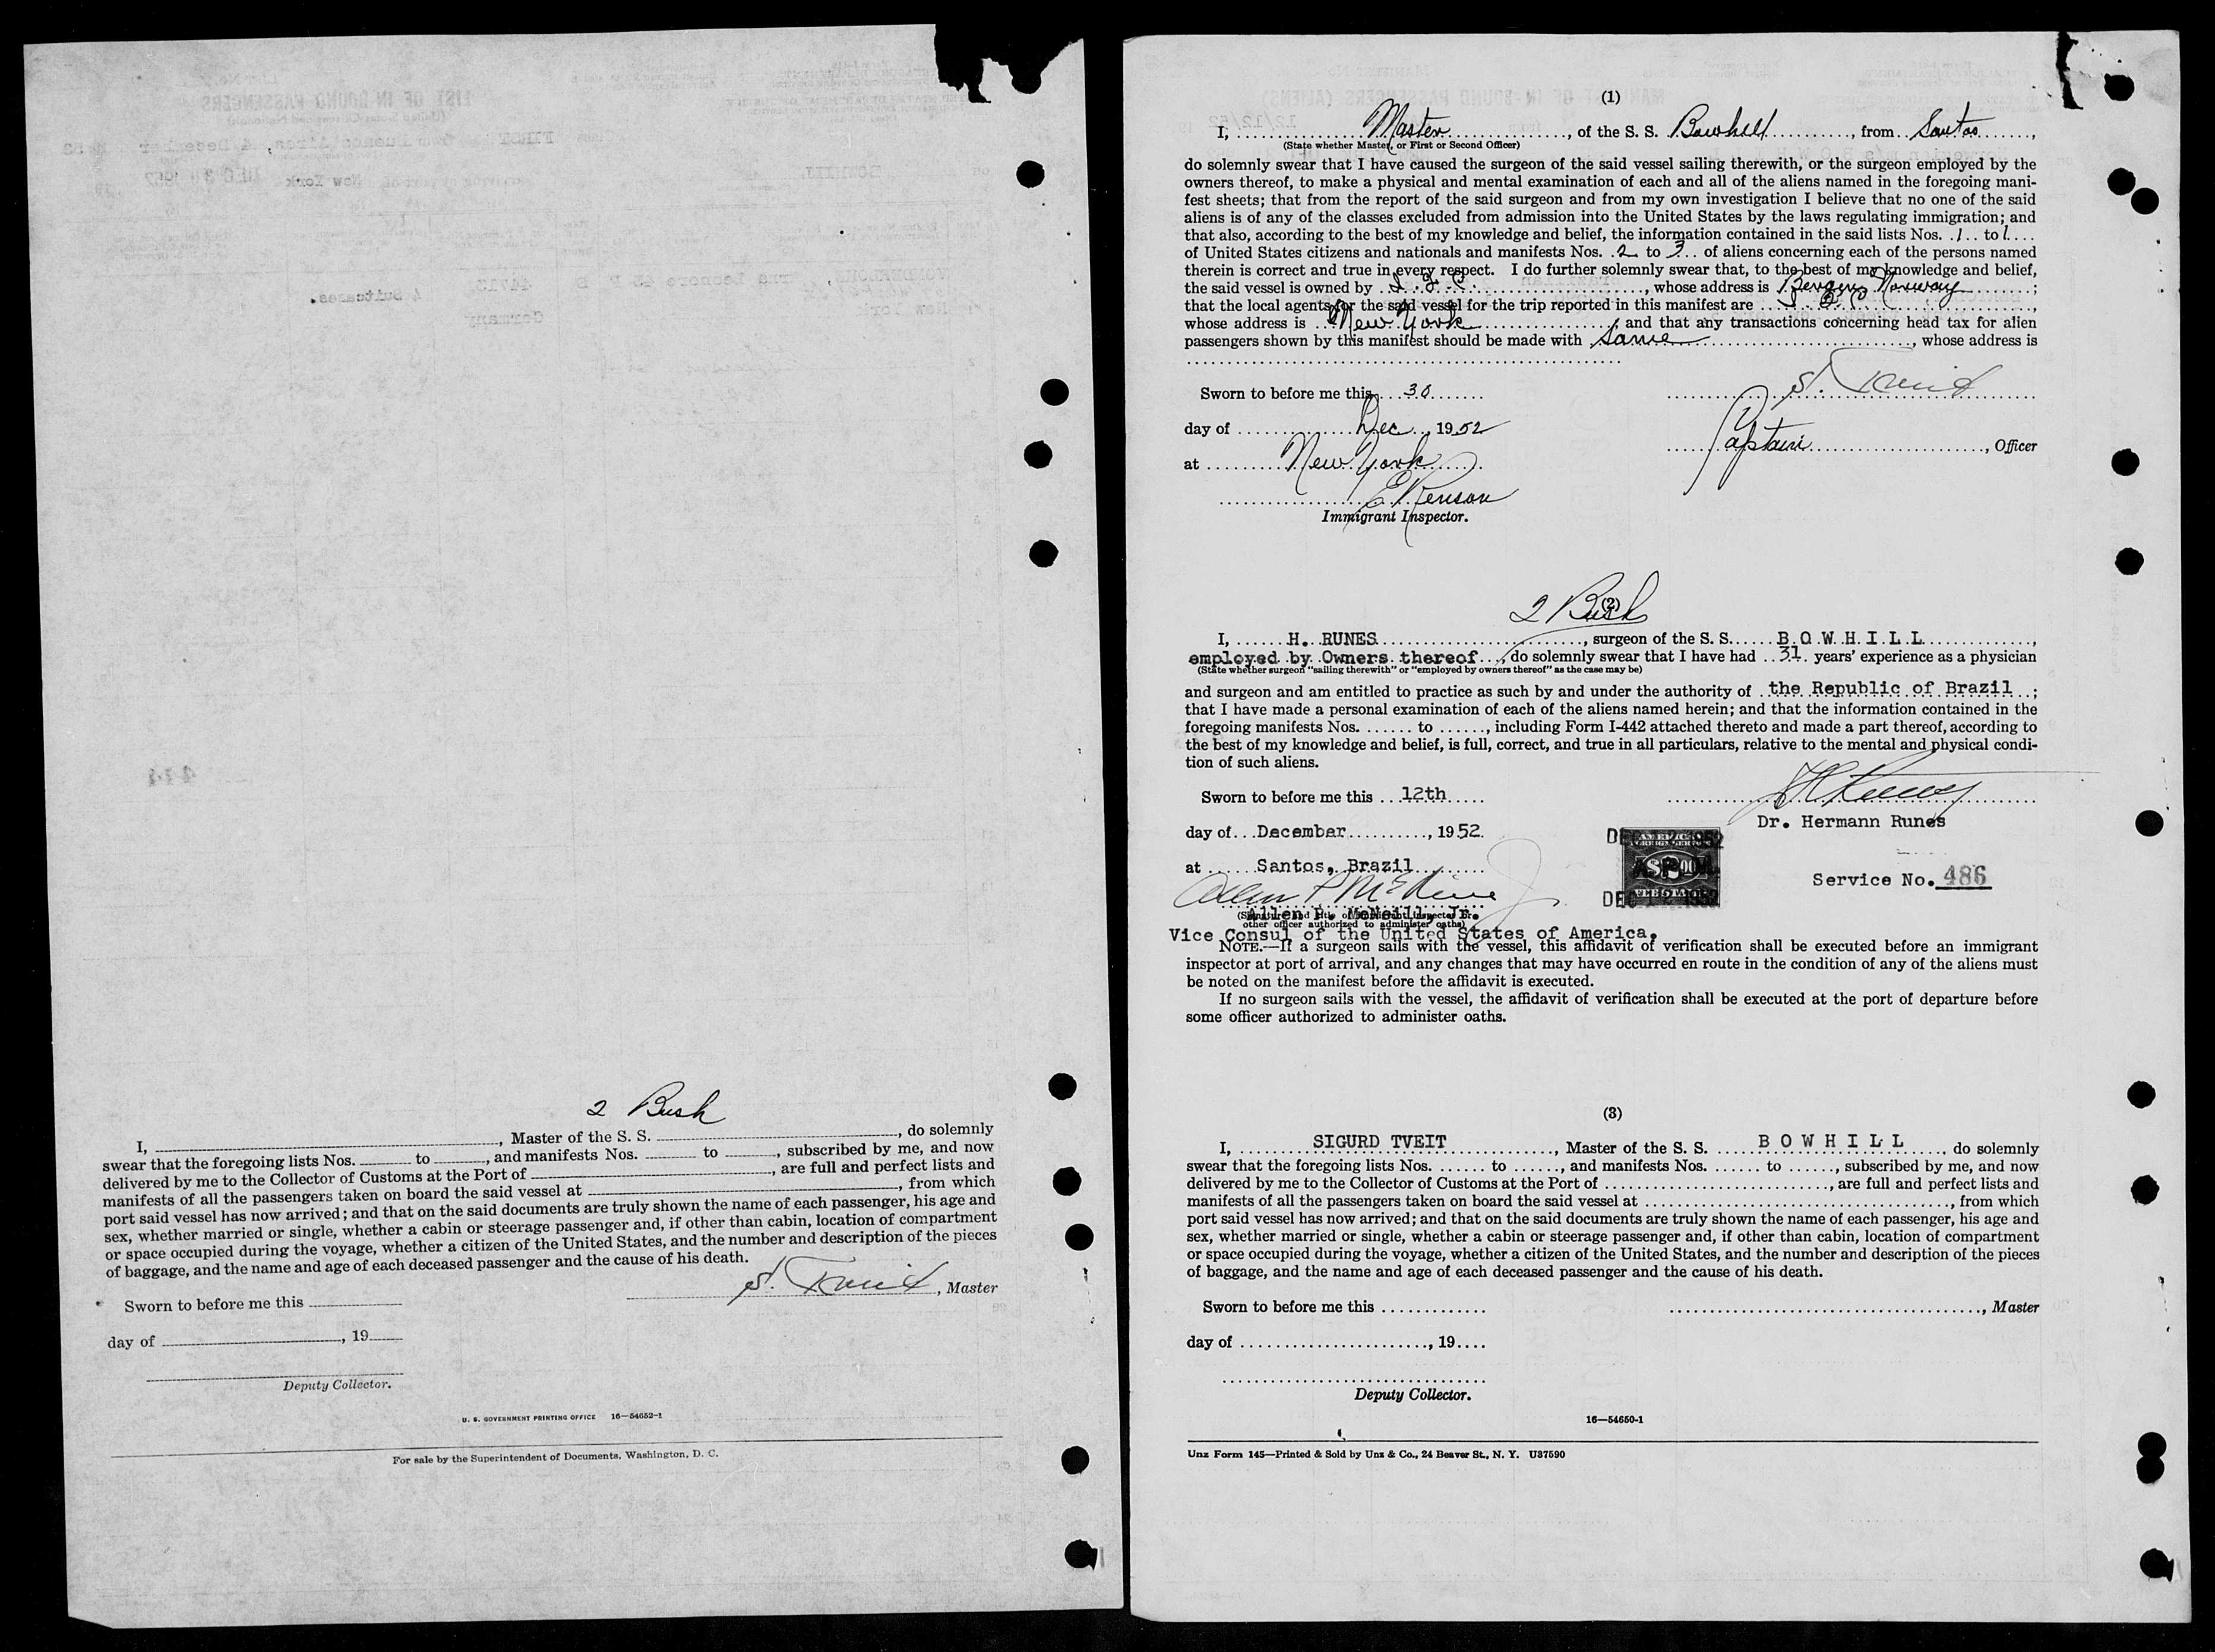 2 Bush
I, ________, Master of the S. S. ________, do solemnly
swear that the foregoing lists Nos. ____ to ____, and manifests Nos. ____ to ____, subscribed by me, and now
delivered by me to the Collector of Customs at the Port of ________, are full and perfect lists and
manifests of all the passengers taken on board the said vessel at ________, from which
port said vessel has now arrived; and that on the said documents are truly shown the name of each passenger, his age and
sex, whether married or single, whether a cabin or steerage passenger and, if other than cabin, location of compartment
or space occupied during the voyage, whether a citizen of the United States, and the number and description of the pieces
of baggage, and the name and age of each deceased passenger and the cause of his death.
S. Tveit, Master
Sworn to before me this ________
day of ________, 19____
Deputy Collector.
U. S. GOVERNMENT PRINTING OFFICE 16—54652-1
For sale by the Superintendent of Documents, Washington, D. C.
(1)
I, Master, of the S. S. Bowhill, from Santos,
(State whether Master, or First or Second Officer)
do solemnly swear that I have caused the surgeon of the said vessel sailing therewith, or the surgeon employed by the
owners thereof, to make a physical and mental examination of each and all of the aliens named in the foregoing mani-
fest sheets; that from the report of the said surgeon and from my own investigation I believe that no one of the said
aliens is of any of the classes excluded from admission into the United States by the laws regulating immigration; and
that also, according to the best of my knowledge and belief, the information contained in the said lists Nos. 1 to 1
of United States citizens and nationals and manifests Nos. 2 to 3 of aliens concerning each of the persons named
therein is correct and true in every respect. I do further solemnly swear that, to the best of my knowledge and belief,
the said vessel is owned by , whose address is Bergen Norway;
that the local agents for the said vessel for the trip reported in this manifest are ,
whose address is New York, and that any transactions concerning head tax for alien
passengers shown by this manifest should be made with Same, whose address is
Sworn to before me this 30
S. Tveit
day of Dec, 1952
Captain, Officer
at New York
Immigrant Inspector.
2 Bush
(2)
I, H. RUNES, surgeon of the S. S. BOWHILL,
employed by Owners thereof, do solemnly swear that I have had 31 years' experience as a physician
(State whether surgeon "sailing therewith" or "employed by owners thereof" as the case may be)
and surgeon and am entitled to practice as such by and under the authority of the Republic of Brazil;
that I have made a personal examination of each of the aliens named herein; and that the information contained in the
foregoing manifests Nos. ...... to ......, including Form I-442 attached thereto and made a part thereof, according to
the best of my knowledge and belief, is full, correct, and true in all particulars, relative to the mental and physical condi-
tion of such aliens.
Sworn to before me this 12th
Dr. Hermann Runes
day of December, 1952.
at Santos, Brazil
Service No. 486
Allen P. McNeill, Jr.
(Signature and title of Immigrant Inspector or
other officer authorized to administer oaths)
Vice Consul of the United States of America.
NOTE.—If a surgeon sails with the vessel, this affidavit of verification shall be executed before an immigrant
inspector at port of arrival, and any changes that may have occurred en route in the condition of any of the aliens must
be noted on the manifest before the affidavit is executed.
If no surgeon sails with the vessel, the affidavit of verification shall be executed at the port of departure before
some officer authorized to administer oaths.
(3)
I, SIGURD TVEIT, Master of the S. S. BOWHILL, do solemnly
swear that the foregoing lists Nos. ...... to ......, and manifests Nos. ...... to ......, subscribed by me, and now
delivered by me to the Collector of Customs at the Port of ......, are full and perfect lists and
manifests of all the passengers taken on board the said vessel at ......, from which
port said vessel has now arrived; and that on the said documents are truly shown the name of each passenger, his age and
sex, whether married or single, whether a cabin or steerage passenger and, if other than cabin, location of compartment
or space occupied during the voyage, whether a citizen of the United States, and the number and description of the pieces
of baggage, and the name and age of each deceased passenger and the cause of his death.
Sworn to before me this ......
......, Master
day of ......, 19....
Deputy Collector.
16—54650-1
Unz Form 145—Printed & Sold by Unz & Co., 24 Beaver St., N. Y. U37590